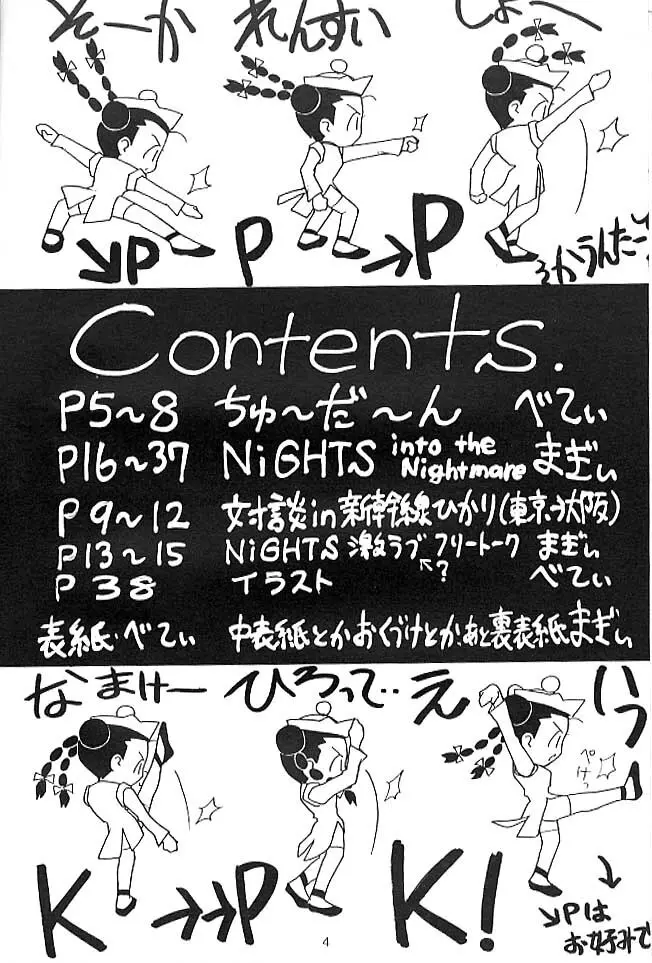 そーか れんすい しょー
↘P P →P
Contents.
P5〜8 ちゅ〜だ〜ん べてぃ
P16〜37 NiGHTS into the Nightmare まぎぃ
P9〜12 対談in新幹線ひかり(東京⇒大阪)
P13〜15 NiGHTS 激ラブ フリートーク まぎぃ
↖?
P38 イラスト べてぃ
表紙・べてぃ 中表紙とかおくづけとか、あと裏表紙まぎぃ
なまけー ひろって‥ えいっ
ぺけっ
K →→P K!
↘Pは
お好みで
4